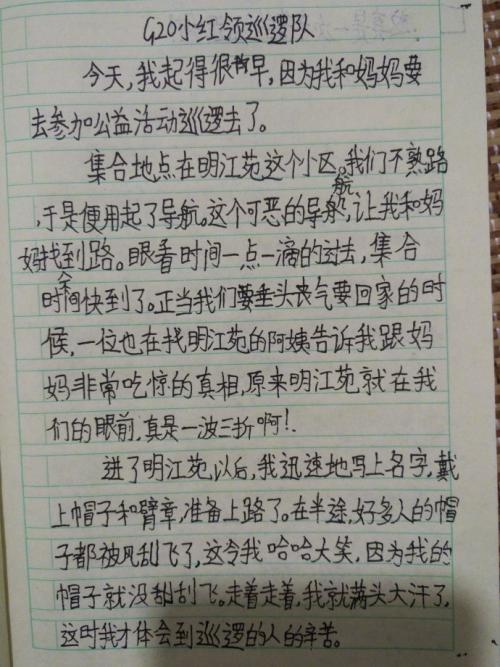 G20小红领巡逻队
今天,我起得很早,因为我和妈妈要
去参加公益活动巡逻去了。
集合地点在明江苑这个小区。我们不熟路
于是便用起了导航。这个可恶的导航,让我和妈
妈找不到路。眼看时间一点一滴的过去,集合
时间快到了。正当我们要垂头丧气要回家的时
候,一位也在找明江苑的阿姨告诉我跟妈
妈非常吃惊的真相,原来明江苑就在我
们的眼前,真是一波三折啊!
进了明江苑以后,我迅速地写上名字,戴
上帽子和臂章,准备上路了。在半途,好多人的帽
子都被风刮飞了,这令我哈哈大笑,因为我的
帽子就没刮飞。走着走着,我就满头大汗了,
这时我才体会到巡逻的人的辛苦。